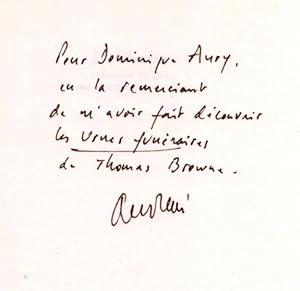 Pour Dominique Aury,
en la remerciant
de m'avoir fait découvrir
les Urnes funéraires
de Thomas Browne.